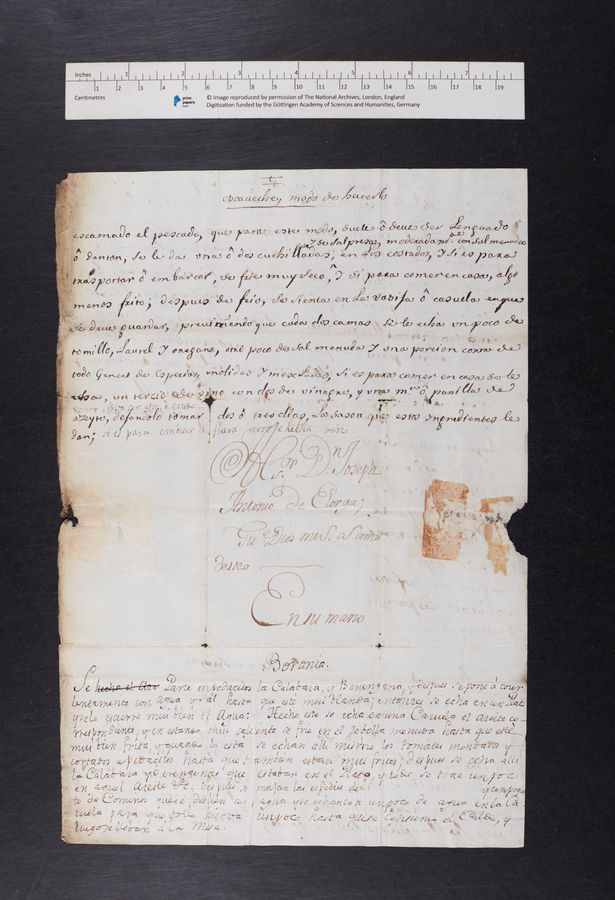 Inches 1 2 3 4 5 6 7
1 2 3 4 5 6 7 8 9 10 11 12 13 14 15 16 17 18 19
Centimetres
prize papers
© Image reproduced by permission of The National Archives, London, England
Digitization funded by the Göttingen Academy of Sciences and Humanities, Germany
escaveche, y modo de hacerlo
escamado el pescado, que para este modo, suele ô deve ser Lenguado
y de Sal presa, moderadam.te con Sal menuda
ô denton, se le da una ô dos cuchilladas, en los costados, y si es para
transportar ô embarcar, se frie muy seco, y si para comer en casa, algo
menos frito; despues de frio, se sienta en la vasija ô casuela en que
se deve guardar, previniendo que cada dos camas se le echa un poco de
tomillo, Laurel y oregano, otro poco de sal menuda y una porcion corta de
todo genero de Especias, molidas y mescladas, si es para comer en casa se le
echa, un tercio de vino con dos de vinagre, y una panilla de
azeyte, dejandolo tomar dos ô tres dias, la sason que estos yngredientes le
dan; si es para embarcar
A S.r D.n Joseph
Antonio de Elorga;
Gu.e Dios m.s a.s como
deseo
En su mano
Boronia.
Se hecha el Parte en pedacitos la Calabaza, y Berengena, y despues se pone à cocer
lentamente con Agua y sàl hasta que esté mui blanda; entonces se echa en un Plat
y se le escurre mui bien el Agua: Hecho esto se echa en una Cazuela el Azeite co-
rrespondiente, y en estando mui caliente se frie en el zebolla menuda hasta que esté
mui bien frita, y quando lo esta se echan alli mismo los tomates mondados y
cortados a pedacitos hasta que tambien estan mui fritos; despues se echa alli
la Calabaza y Berengenas que estaban en el Plato, y todo se trae un poc
en aquel Azeite &c. Despues se majan las especies de
to de Cominos que se deslien en agua y se echan con un poco de agua en la Ca
zuela para que todo hierva un poco hasta que se consuma el Caldo, y
luego se lleban a la Mesa.